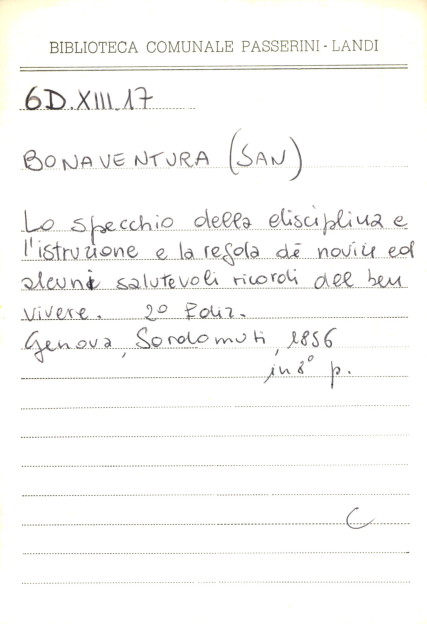 BIBLIOTECA COMUNALE PASSERINI - LANDI
6D.XIII.17
BONAVENTURA (SAN)
Lo specchio della disciplina e
l'istruzione e la regola de novizi ed
alcuni salutevoli ricordi del ben
vivere. 2º Ediz.
Genova, Sordomuti, 1856
in 8° p.
C